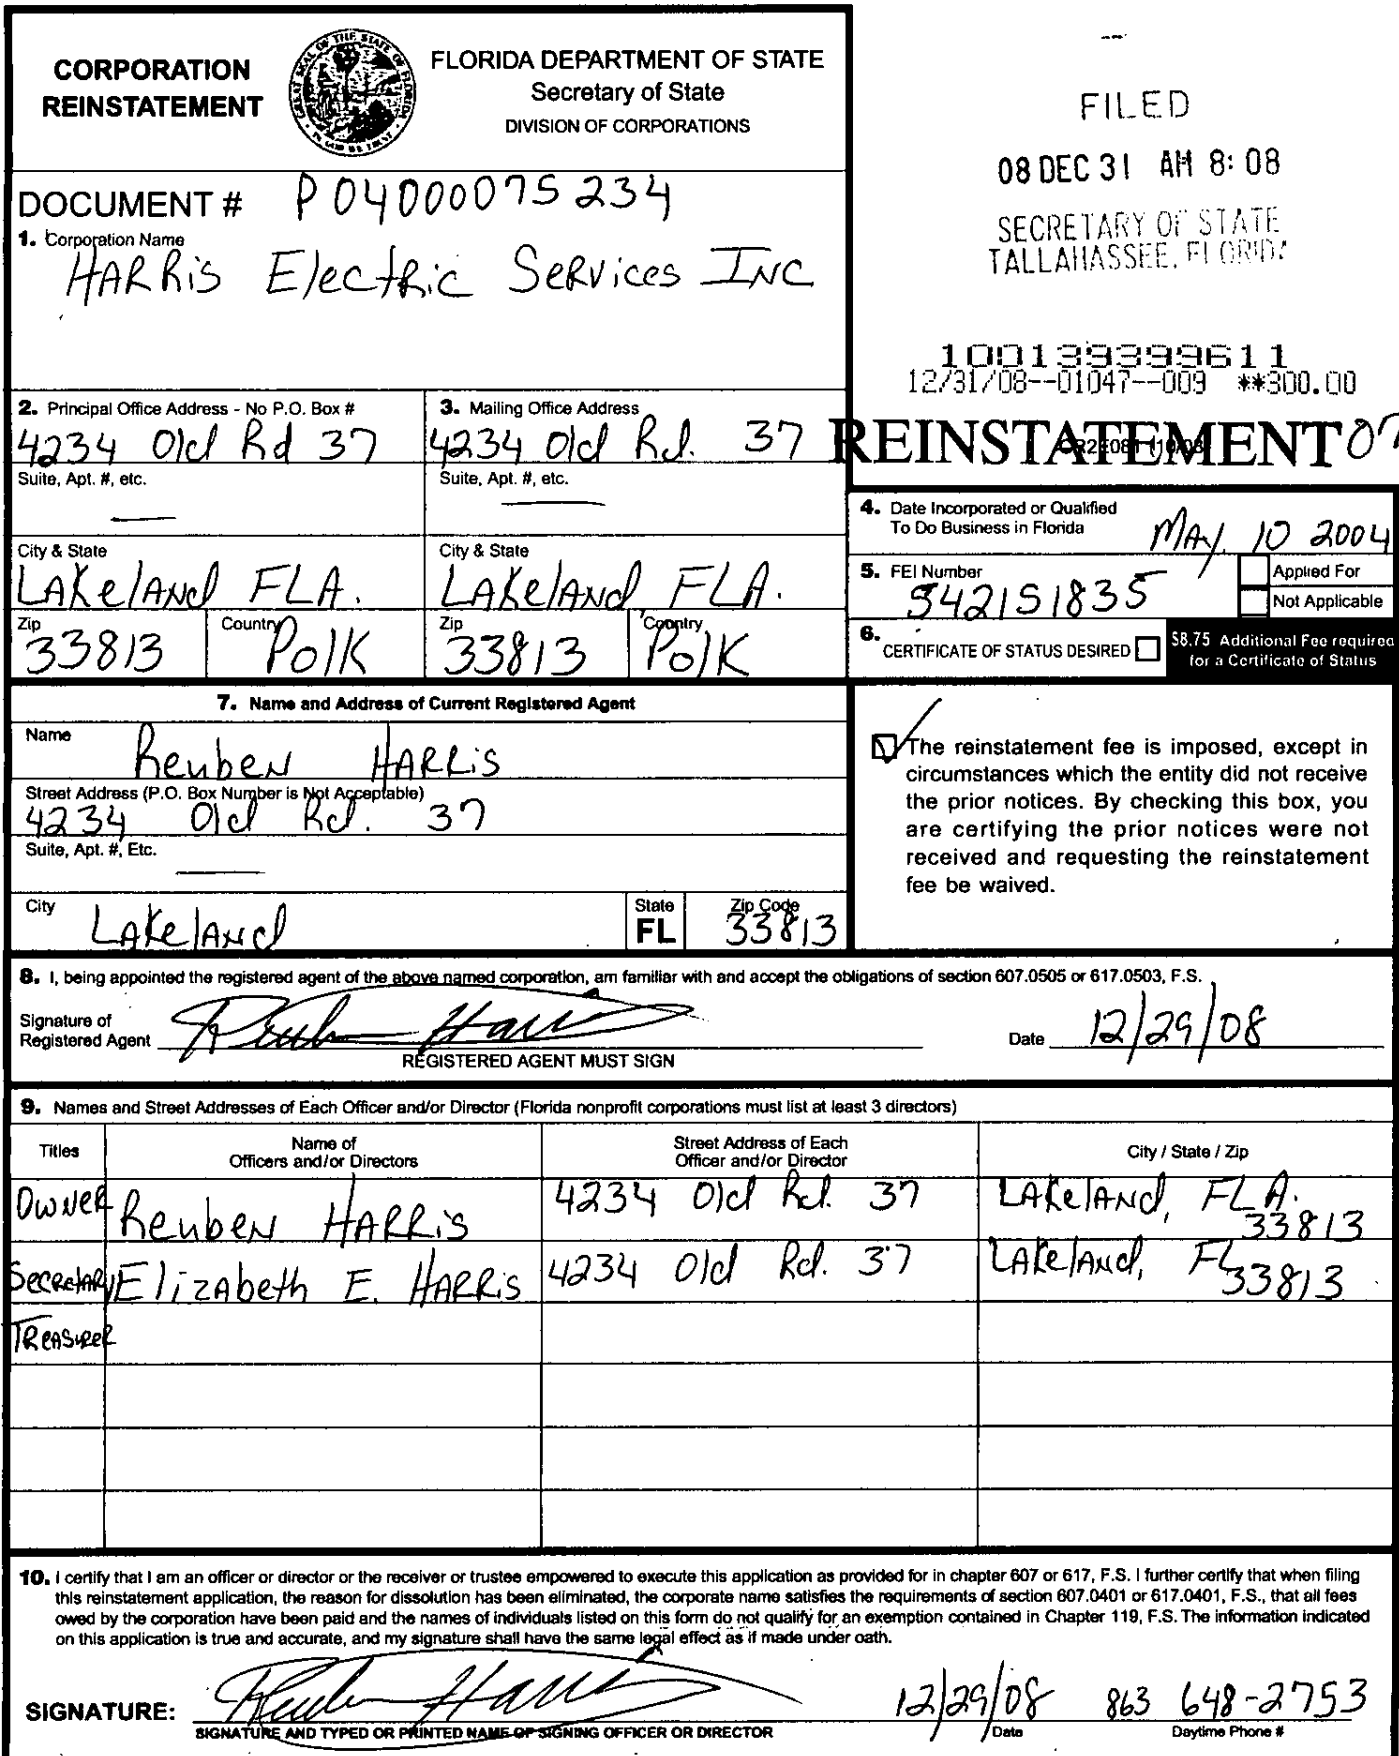 CORPORATION
REINSTATEMENT
FLORIDA DEPARTMENT OF STATE
Secretary of State
DIVISION OF CORPORATIONS
FILED
08 DEC 31 AM 8:08
SECRETARY OF STATE
TALLAHASSEE, FLORIDA
DOCUMENT # P04000075234
1. Corporation Name
HARRis Electric Services INC
100139399611
12/31/08--01047--009 **300.00
2. Principal Office Address - No P.O. Box #
4234 Old Rd 37
3. Mailing Office Address
4234 Old Rd. 37
REINSTATEMENT 07
Suite, Apt. #, etc.
Suite, Apt. #, etc.
4. Date Incorporated or Qualified
To Do Business in Florida
MAY. 10 2004
City & State
LAKelANd FLA.
City & State
LAKelANd, FLA.
5. FEI Number
542151835
Applied For
Not Applicable
Zip
33813
Country
Polk
Zip
33813
Country
Polk
6. CERTIFICATE OF STATUS DESIRED
$8.75 Additional Fee required
for a Certificate of Status
7. Name and Address of Current Registered Agent
Name
Reuben HARRis
Street Address (P.O. Box Number is Not Acceptable)
4234 Old Rd. 37
Suite, Apt. #, Etc.
City
LAKelANd
State
FL
Zip Code
33813
The reinstatement fee is imposed, except in
circumstances which the entity did not receive
the prior notices. By checking this box, you
are certifying the prior notices were not
received and requesting the reinstatement
fee be waived.
8. I, being appointed the registered agent of the above named corporation, am familiar with and accept the obligations of section 607.0505 or 617.0503, F.S.
Signature of
Registered Agent
Reuben Harris
REGISTERED AGENT MUST SIGN
Date 12/29/08
9. Names and Street Addresses of Each Officer and/or Director (Florida nonprofit corporations must list at least 3 directors)
Titles
Name of
Officers and/or Directors
Street Address of Each
Officer and/or Director
City / State / Zip
OwNeR Reuben HARRis 4234 Old Rd. 37 LAKelANd, FLA. 33813
SecRetARy Elizabeth E. HARRis 4234 Old Rd. 37 LAKelANd, FL 33813
TReasureR
10. I certify that I am an officer or director or the receiver or trustee empowered to execute this application as provided for in chapter 607 or 617, F.S. I further certify that when filing
this reinstatement application, the reason for dissolution has been eliminated, the corporate name satisfies the requirements of section 607.0401 or 617.0401, F.S., that all fees
owed by the corporation have been paid and the names of individuals listed on this form do not qualify for an exemption contained in Chapter 119, F.S. The information indicated
on this application is true and accurate, and my signature shall have the same legal effect as if made under oath.
SIGNATURE: Reuben Harris 12/29/08 863 648-2753
SIGNATURE AND TYPED OR PRINTED NAME OF SIGNING OFFICER OR DIRECTOR
Date
Daytime Phone #